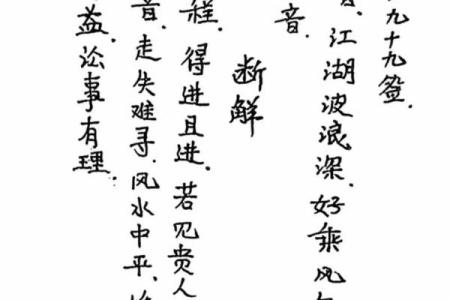 九十九签.
江湖波浪深.好乘风
音.
断解
程.得进且进.若见贵人
音.走失难寻.风水中平.
益.讼事有理.